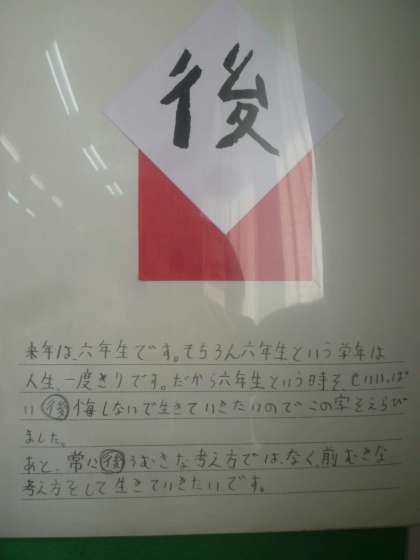 後
来年は、六年生です。もちろん六年生という学年は
人生、一度きりです。だから六年生という時を、せいいっぱ
い後悔しないで生きていきたいのでこの字をえらび
ました。
あと、常に後ろむきな考え方では、なく、前むきな
考え方をして生きていきたいです。